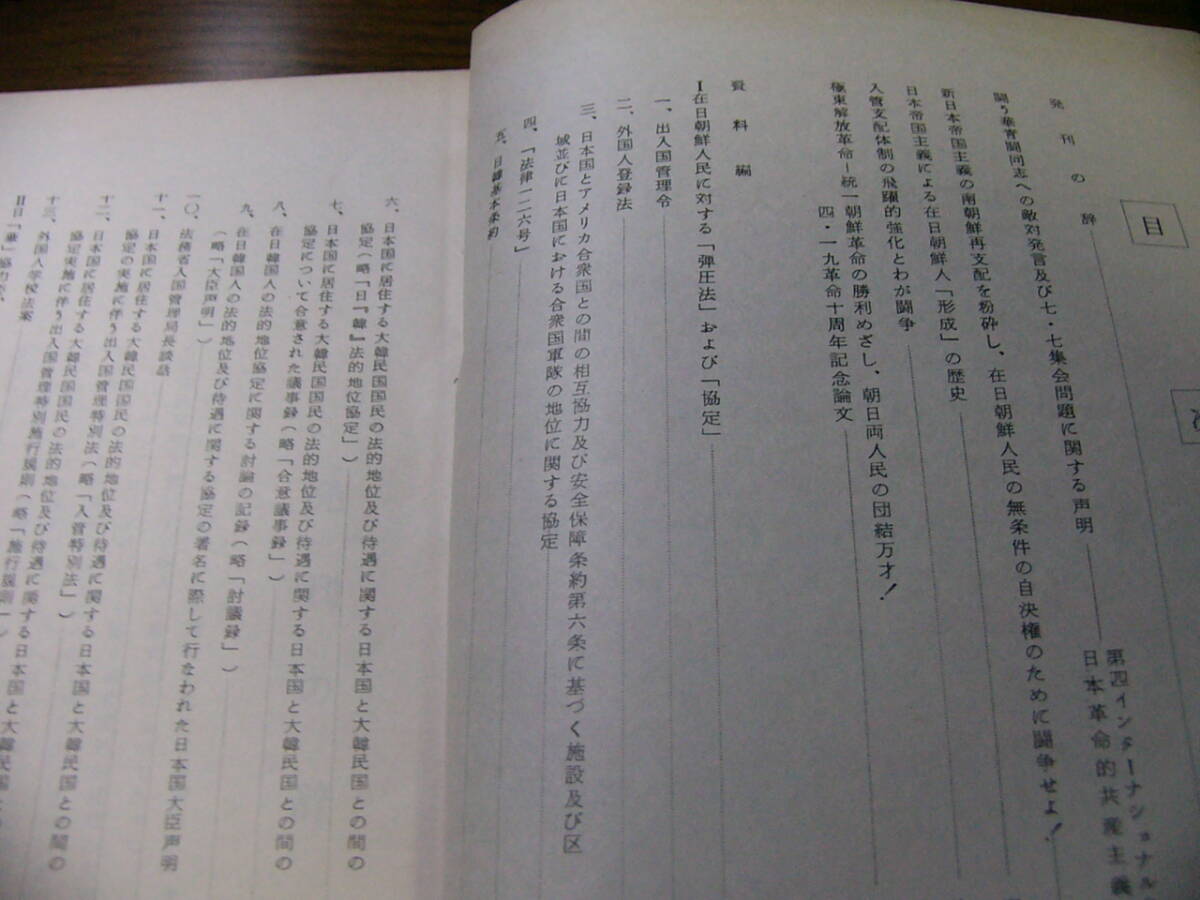 目
発刊の辞
第四インターナショナル
日本革命的共産主義
闘う華青闘同志への敵対発言及び七・七集会問題に関する声明
新日本帝国主義の南朝鮮再支配を粉砕し、在日朝鮮人民の無条件の自決権のために闘争せよ!
日本帝国主義による在日朝鮮人「形成」の歴史
入管支配体制の飛躍的強化とわが闘争
極東解放革命―統一朝鮮革命の勝利めざし、朝日両人民の団結万才!
四・一九革命十周年記念論文
資料編
Ⅰ在日朝鮮人民に対する「弾圧法」および「協定」
一、出入国管理令
二、外国人登録法
三、日本国とアメリカ合衆国との間の相互協力及び安全保障条約第六条に基づく施設及び区
域並びに日本国における合衆国軍隊の地位に関する協定
四、「法律一二六号」
五、日韓基本条約
六、日本国に居住する大韓民国国民の法的地位及び待遇に関する日本国と大韓民国との間の
協定(略「日『韓』法的地位協定」)
七、日本国に居住する大韓民国国民の法的地位及び待遇に関する日本国と大韓民国との間の
協定について合意された議事録(略「合意議事録」)
八、在日韓国人の法的地位協定に関する討論の記録(略「討議録」)
九、在日韓国人の法的地位及び待遇に関する協定の署名に際して行なわれた日本国大臣声明
(略「大臣声明」)
一〇、法務省入国管理局長談話
十一、日本国に居住する大韓民国国民の法的地位及び待遇に関する日本国と大韓民国との間の
協定の実施に伴う出入国管理特別法(略「入管特別法」)
十二、日本国に居住する大韓民国国民の法的地位及び待遇に関する日本国と大韓民国との
協定実施に伴う出入国管理特別施行規則(略「施行規則」)
十三、外国人学校法案
Ⅱ日「韓」協力